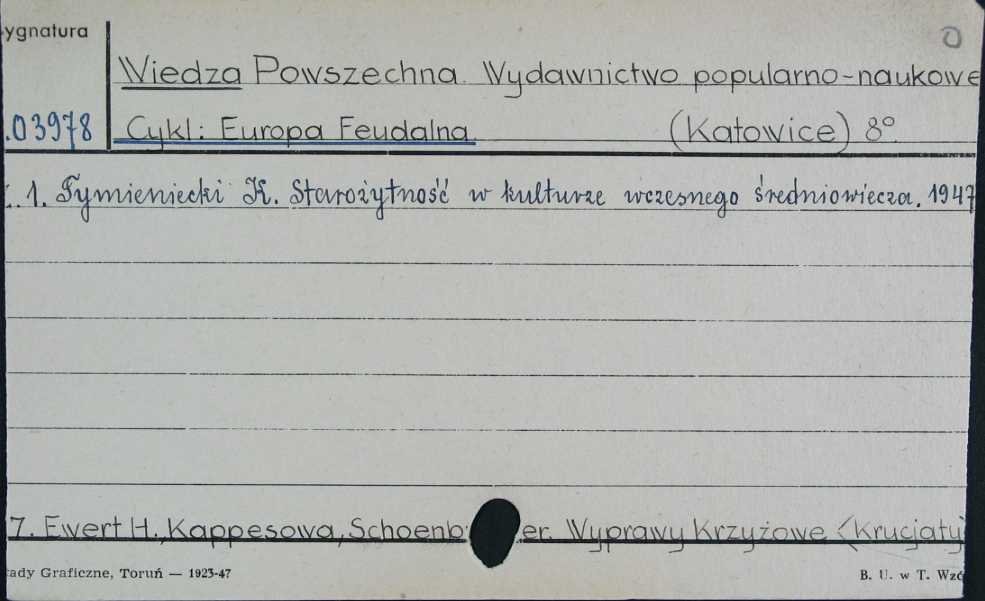 ygnatura
O
Wiedza Powszechna. Wydawnictwo popularno-naukowe
.03978 Cykl: Europa Feudalna. (Katowice) 8°
1. Tymieniecki K. Starożytność w kulturze wczesnego średniowiecza. 1947
7. Ewert H., Kappesowa, Schoenb er. Wyprawy Krzyżowe (Krucjaty)
ady Graficzne, Toruń — 1923-47
B. U. w T. Wzó